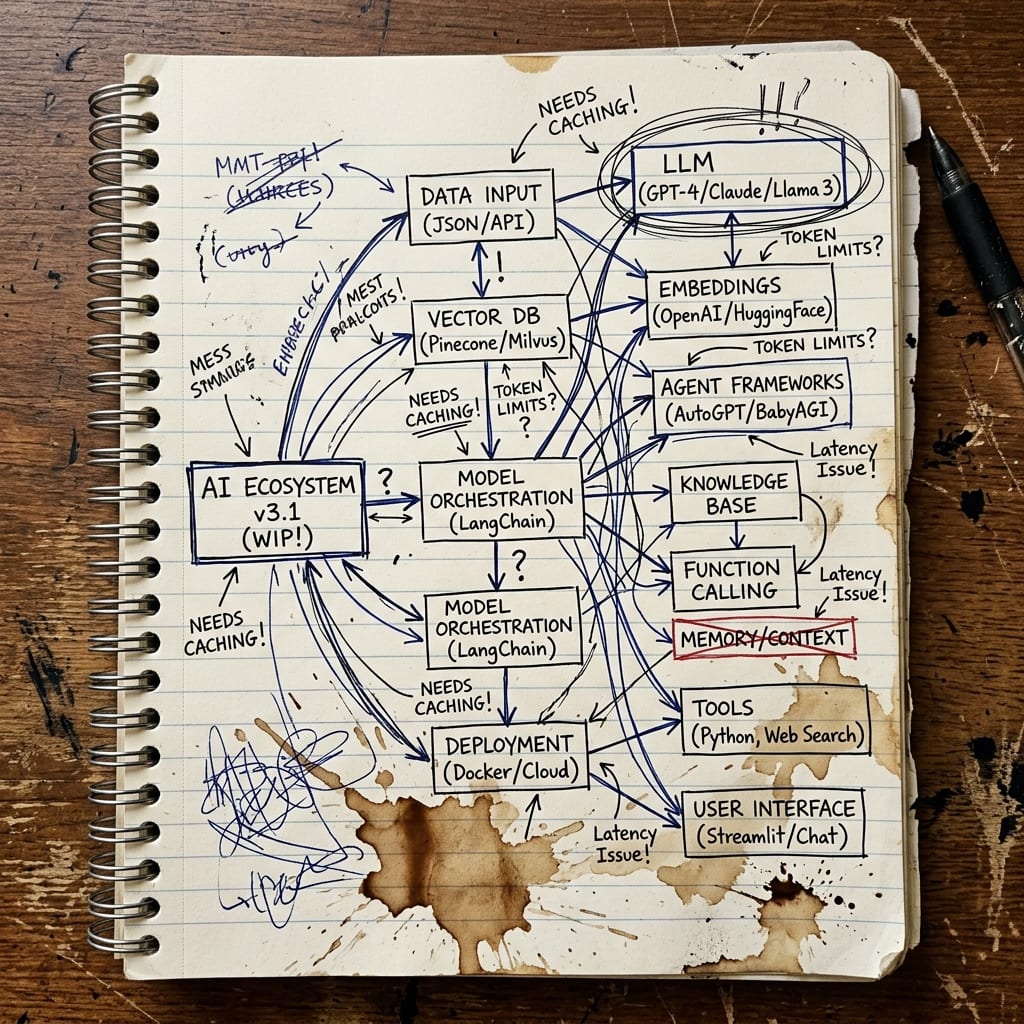 NEEDS
CACHING!
!!?
MMT
DATA INPUT
(JSON/API)
LLM
(GPT-4/Claude/Llama 3)
TOKEN
LIMITS?
!
EMBEDDINGS
(OpenAI/HuggingFace)
MEST
VECTOR DB
(Pinecone/Milvus)
TOKEN LIMITS?
MESS
AGENT FRAMEWORKS
(AutoGPT/BabyAGI)
NEEDS
CACHING!
TOKEN
LIMITS?
?
Latency
Issue!
AI ECOSYSTEM
v3.1
(WIP!)
?
MODEL
ORCHESTRATION
(LangChain)
KNOWLEDGE
BASE
?
FUNCTION
CALLING
Latency
Issue!
NEEDS
CACHING!
MODEL
ORCHESTRATION
(LangChain)
MEMORY/CONTEXT
NEEDS
CACHING!
TOOLS
(Python, Web Search)
DEPLOYMENT
(Docker/Cloud)
USER INTERFACE
(Streamlit/Chat)
Latency
Issue!